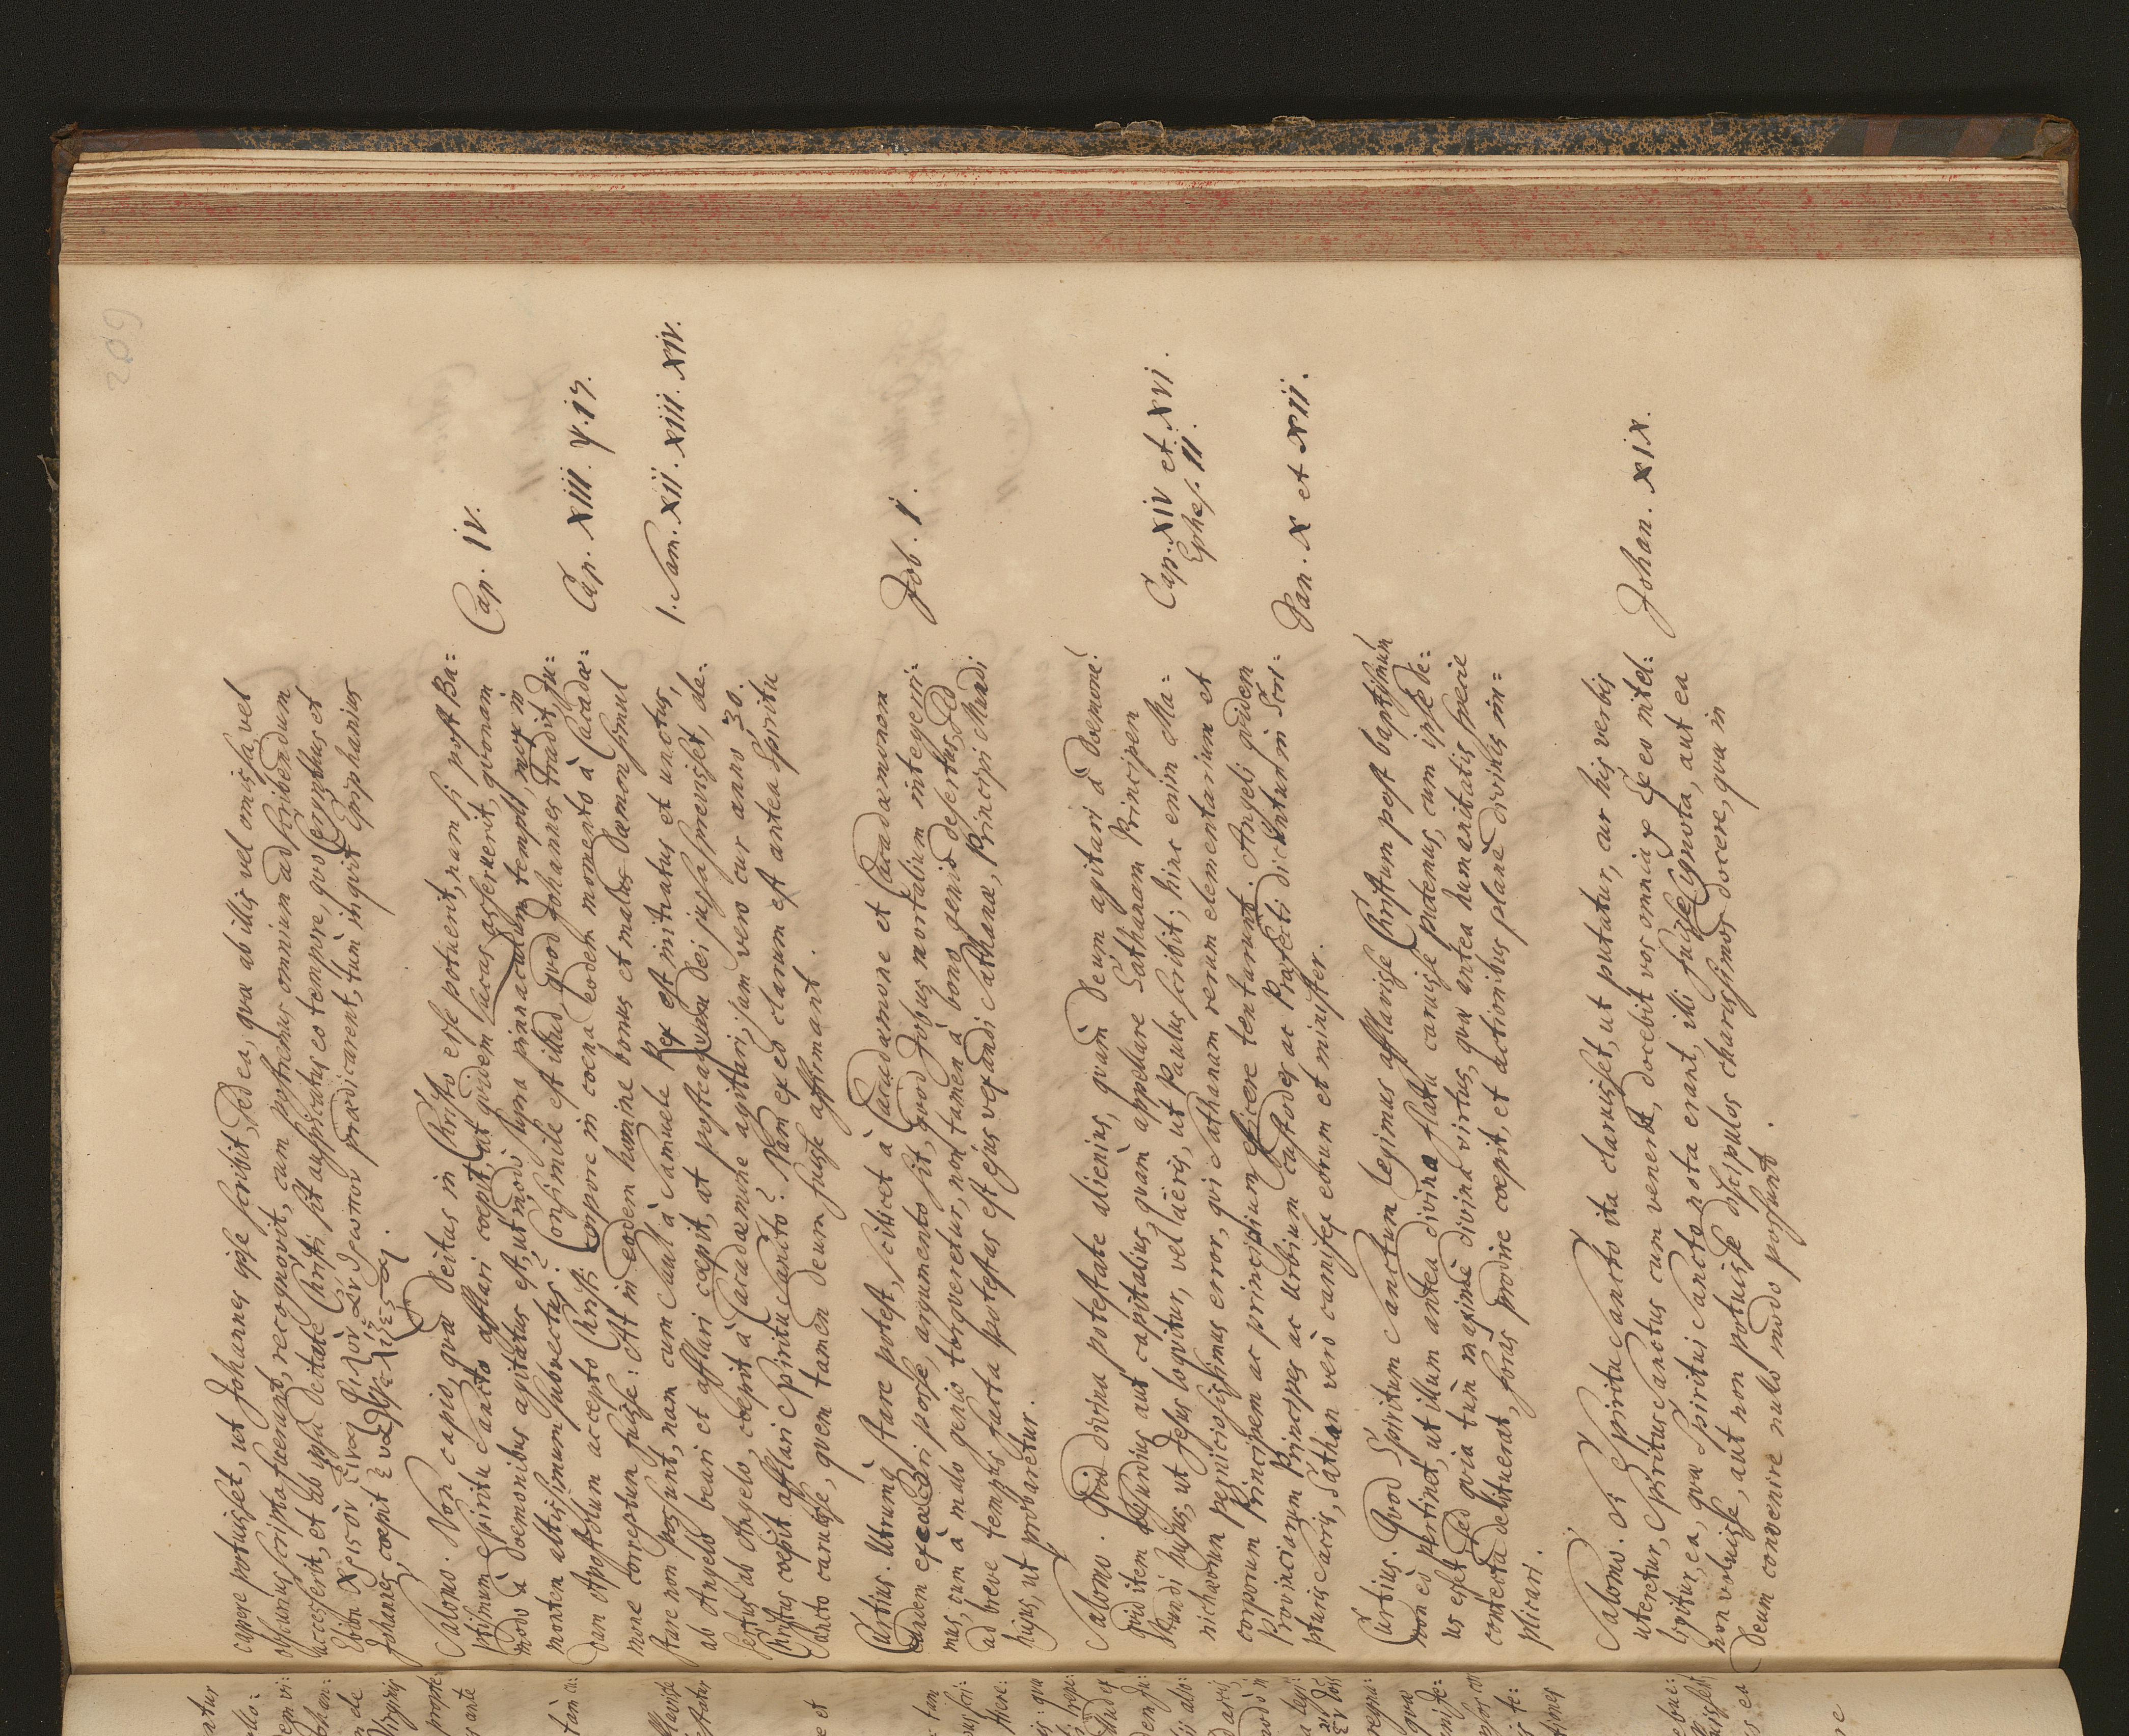 209
capere potuisset, ut Johannes ipse scribit, sed ea, quæ ab illis vel omissa, vel
obscurius scripta fuerunt, recognovit, cum postremus omnium ad scribendum
accesserit, et ab ipsa deitate Christi sit auspicatus eo tempore, quo Cerynthus et
Ebion Χριστὸν εἶναι ψιλὸν ἄνθρωπον prædicarent, tum inquit Epiphanius
Johannes, coepit
Salomo. Non capio, quæ deitas in Christo esse potuerit, nam si post Ba=
ptismum Spiritu Sancto afflari coepit, ut quidem Lucas asseruit, quonam
modo à Dæmonibus agitatus est, ut modò supra pinnaculum templi, mox in
montem altissimum subvectus? Consimile est illud quod Johannes tradit, Ju=
dam Apostolum accepto Christi corpore in coena eodem momento à Cacodæ=
mone correptum fuisse: At in eodem homine bonus et malus Dæmon simul
stare non possunt, nam cum Saul à Samuele Rex est initiatus et unctus,
ab Angelo beari et afflari coepit, at postea quam Dei jussa sprevisset, de=
sertus ab Angelo, coepit à Cacodæmone agitari, jam vero cur anno 30.
Christus coepit afflari Spiritu Sancto? Nam ex eo clarum est antea Spiritu
Sancto caruisse, quem tamen Deum fuisse affirmant.
Cap. IV.
Cap. XIII. γ. 17.
1. Sam. XII. XIII. XIV.
Curtius. Utrumq stare potest, scilicet à Cacodæmone et Cacodæmonem
eundem posse, argumento sit, quod Jobus mortalium integerri=
mus, cum à malo genio torqueretur, non tamen à bono genio desertus, sed
ad breve tempus facta potestas est ejus vexandi Sathanæ, Principi Mundi
hujus, ut probaretur.
Job. I.
Salomo. Quid divina potestate alienius, quàm Deum agitari à Dæmone?
quid item absurdius aut capitalius, quàm appellare Sathanam Principem
Mundi hujus, ut Jesus loquitur, vel aëris, ut Paulus scribit; hinc enim Ma=
nichæorum perniciosissimus error, qui Sathanam rerum elementarium et
corporum Principem ac principium efficere tentarunt. Angeli quidem
Provinciarum Principes ac Urbium custodes ac Præfecti dicuntur in Scri=
pturis Sacris, Sathan verò carnifex eorum et minister.
Cap. XIV et XVI.
Ephes. II.
Dan. X et XII.
Curtius. Quod Spiritum Sanctum legimus afflavisse Christum post baptismum
non eò pertinet, ut illum antea divino flatu caruisse putemus, cum ipse De=
us esset, sed quia tum maximè divina virtus, quæ antea humanitatis specie
contecta delituerat, foras prodire coepit, et actionibus planè divinis in=
plicari.
Salomo. Si Spiritu Sancto ita claruisset, ut putatur, cur his verbis
uteretur, Spiritus Sanctus cum venerit, docebit vos omnia? Ex eo intel=
ligitur, ea, quæ Spiritui Sancto nota erant, illi fuisse ignota, aut ea
non voluisse, aut non potuisse discipulos charissimos docere, quæ in
Deum convenire nullo modo possunt.
Johan. XIX.